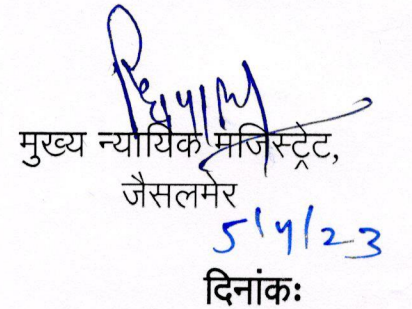 मुख्य न्यायिक मजिस्ट्रेट,
जैसलमेर
5/4/23
दिनांकः